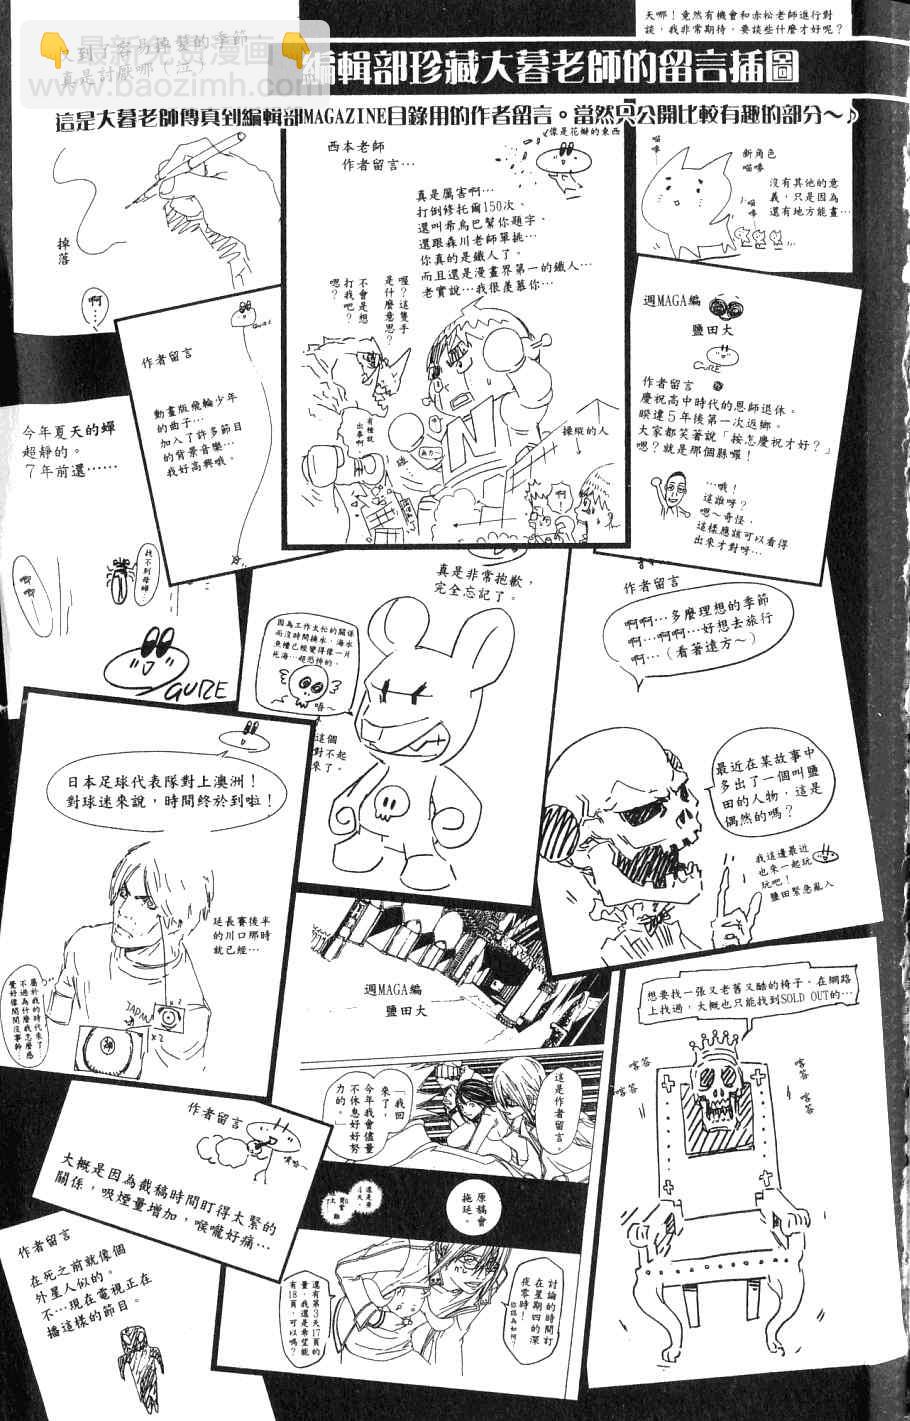 天哪！竟然有機會和赤松老師進行對
談，我非常期待，要談些什麼才好呢？
又到了容易掉髮的季節
真是討厭哪（泣）
免費漫畫
www.baozimh.com
編輯部珍藏大暮老師的留言插圖
這是大暮老師傳真到編輯部MAGAZINE目錄用的作者留言。當然只公開比較有趣的部分～♪
掉
落
啊
……
像是花瓣的東西
西本老師
作者留言…
真是厲害啊…
打倒修托爾150次、
還叫希烏巴幫你題字、
還跟森川老師單挑…
你真的是鐵人了。
而且還是漫畫界第一的鐵人…
老實說…我很羨慕你…
喔？這隻手
是什麼意思？
不會是想
打我吧？
嗯？
有種說
出事啊
操縱的人
啊！
喵
嗲
新角色
喵嗲
沒有其他的意
義，只是因為
還有地方能畫…
喵
嗲
作者留言
動畫版飛輪少年
的曲子…
加入了許多節目
的背景音樂…
我好高興哦。
週MAGA編
鹽田大
GURE
作者留言
慶祝高中時代的恩師退休。
睽違５年後第一次返鄉。
大家都笑著說「按怎慶祝才好？」
嗯？就是那個縣喔！
…哦！
這誰呀？
嗯～奇怪，
這樣應該可以看得
出來才對呀…
今年夏天的蟬
超靜的。
７年前還……
唧唧…
找不到母蟬…
GURE
真是非常抱歉，
完全忘記了。
因為工作太松的關係
而沒時間換水，海水
魚槽已經變得像一片
死海…超恐怖的。
唔～
這個
對不起
來了。
作者留言
啊啊…多麼理想的季節
啊…啊啊…好想去旅行
啊…（看著遠方～）
最近在某故事中
多出了一個叫鹽
田的人物，這是
偶然的嗎？
我這邊最近
也來一起玩
玩吧！
鹽田緊急亂入
日本足球代表隊對上澳洲！
對球迷來說，時間終於到啦！
延長賽後半
的川口那時
就已經…
屬於我的時代來了
不過為什麼我怎麼感
覺好像閒閒沒事幹…
JAPAN
×2
×2
週MAGA編
鹽田大
這是作者留言。
「我回
來了」
今年我會儘量
不休息好好努
力的。
原稿會
拖延。
討論的時間訂
在星期四的深
夜零時！
你認為如何？
還有第3天17頁的
量，我還是希望能
有18頁，可以嗎？
想要找一張又老舊又酷的椅子。在網路
上找過，大概也只能找到SOLD OUT的…
喀答
喀答
喀答
喀答
作者留言
大概是因為截稿時間盯得太緊的
關係，吸煙量增加，喉嚨好痛…
作者留言
在死之前就像個
外星人似的。
不…現在電視正在
播這樣的節目。